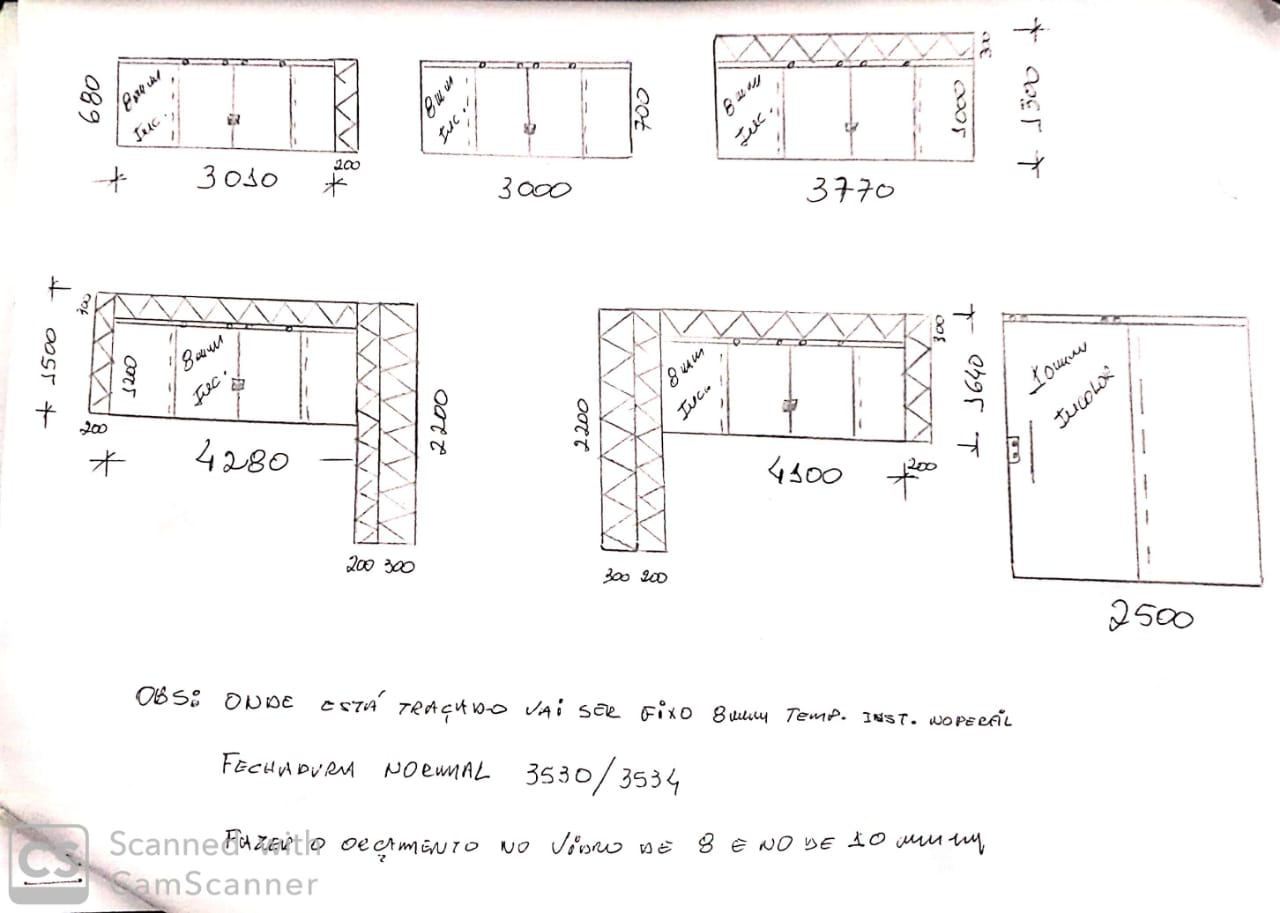 680
8mm
Inc.
3010
200
8mm
Inc.
700
3000
300
8mm
Inc.
1000
1300
3770
300
1500
1200
8mm
Inc.
200
4280
2200
200 300
2200
8mm
Inc.
300
1640
4100
200
300 200
10mm
INCOLOR
2500
OBS: ONDE ESTÁ TRAÇADO VAI SER FIXO 8mm TEMP. INST. NO PERFIL
FECHADURA NORMAL 3530/3534
FAZER O ORÇAMENTO NO VIDRO DE 8 E NO DE 10 mm
CS Scanned with
CamScanner